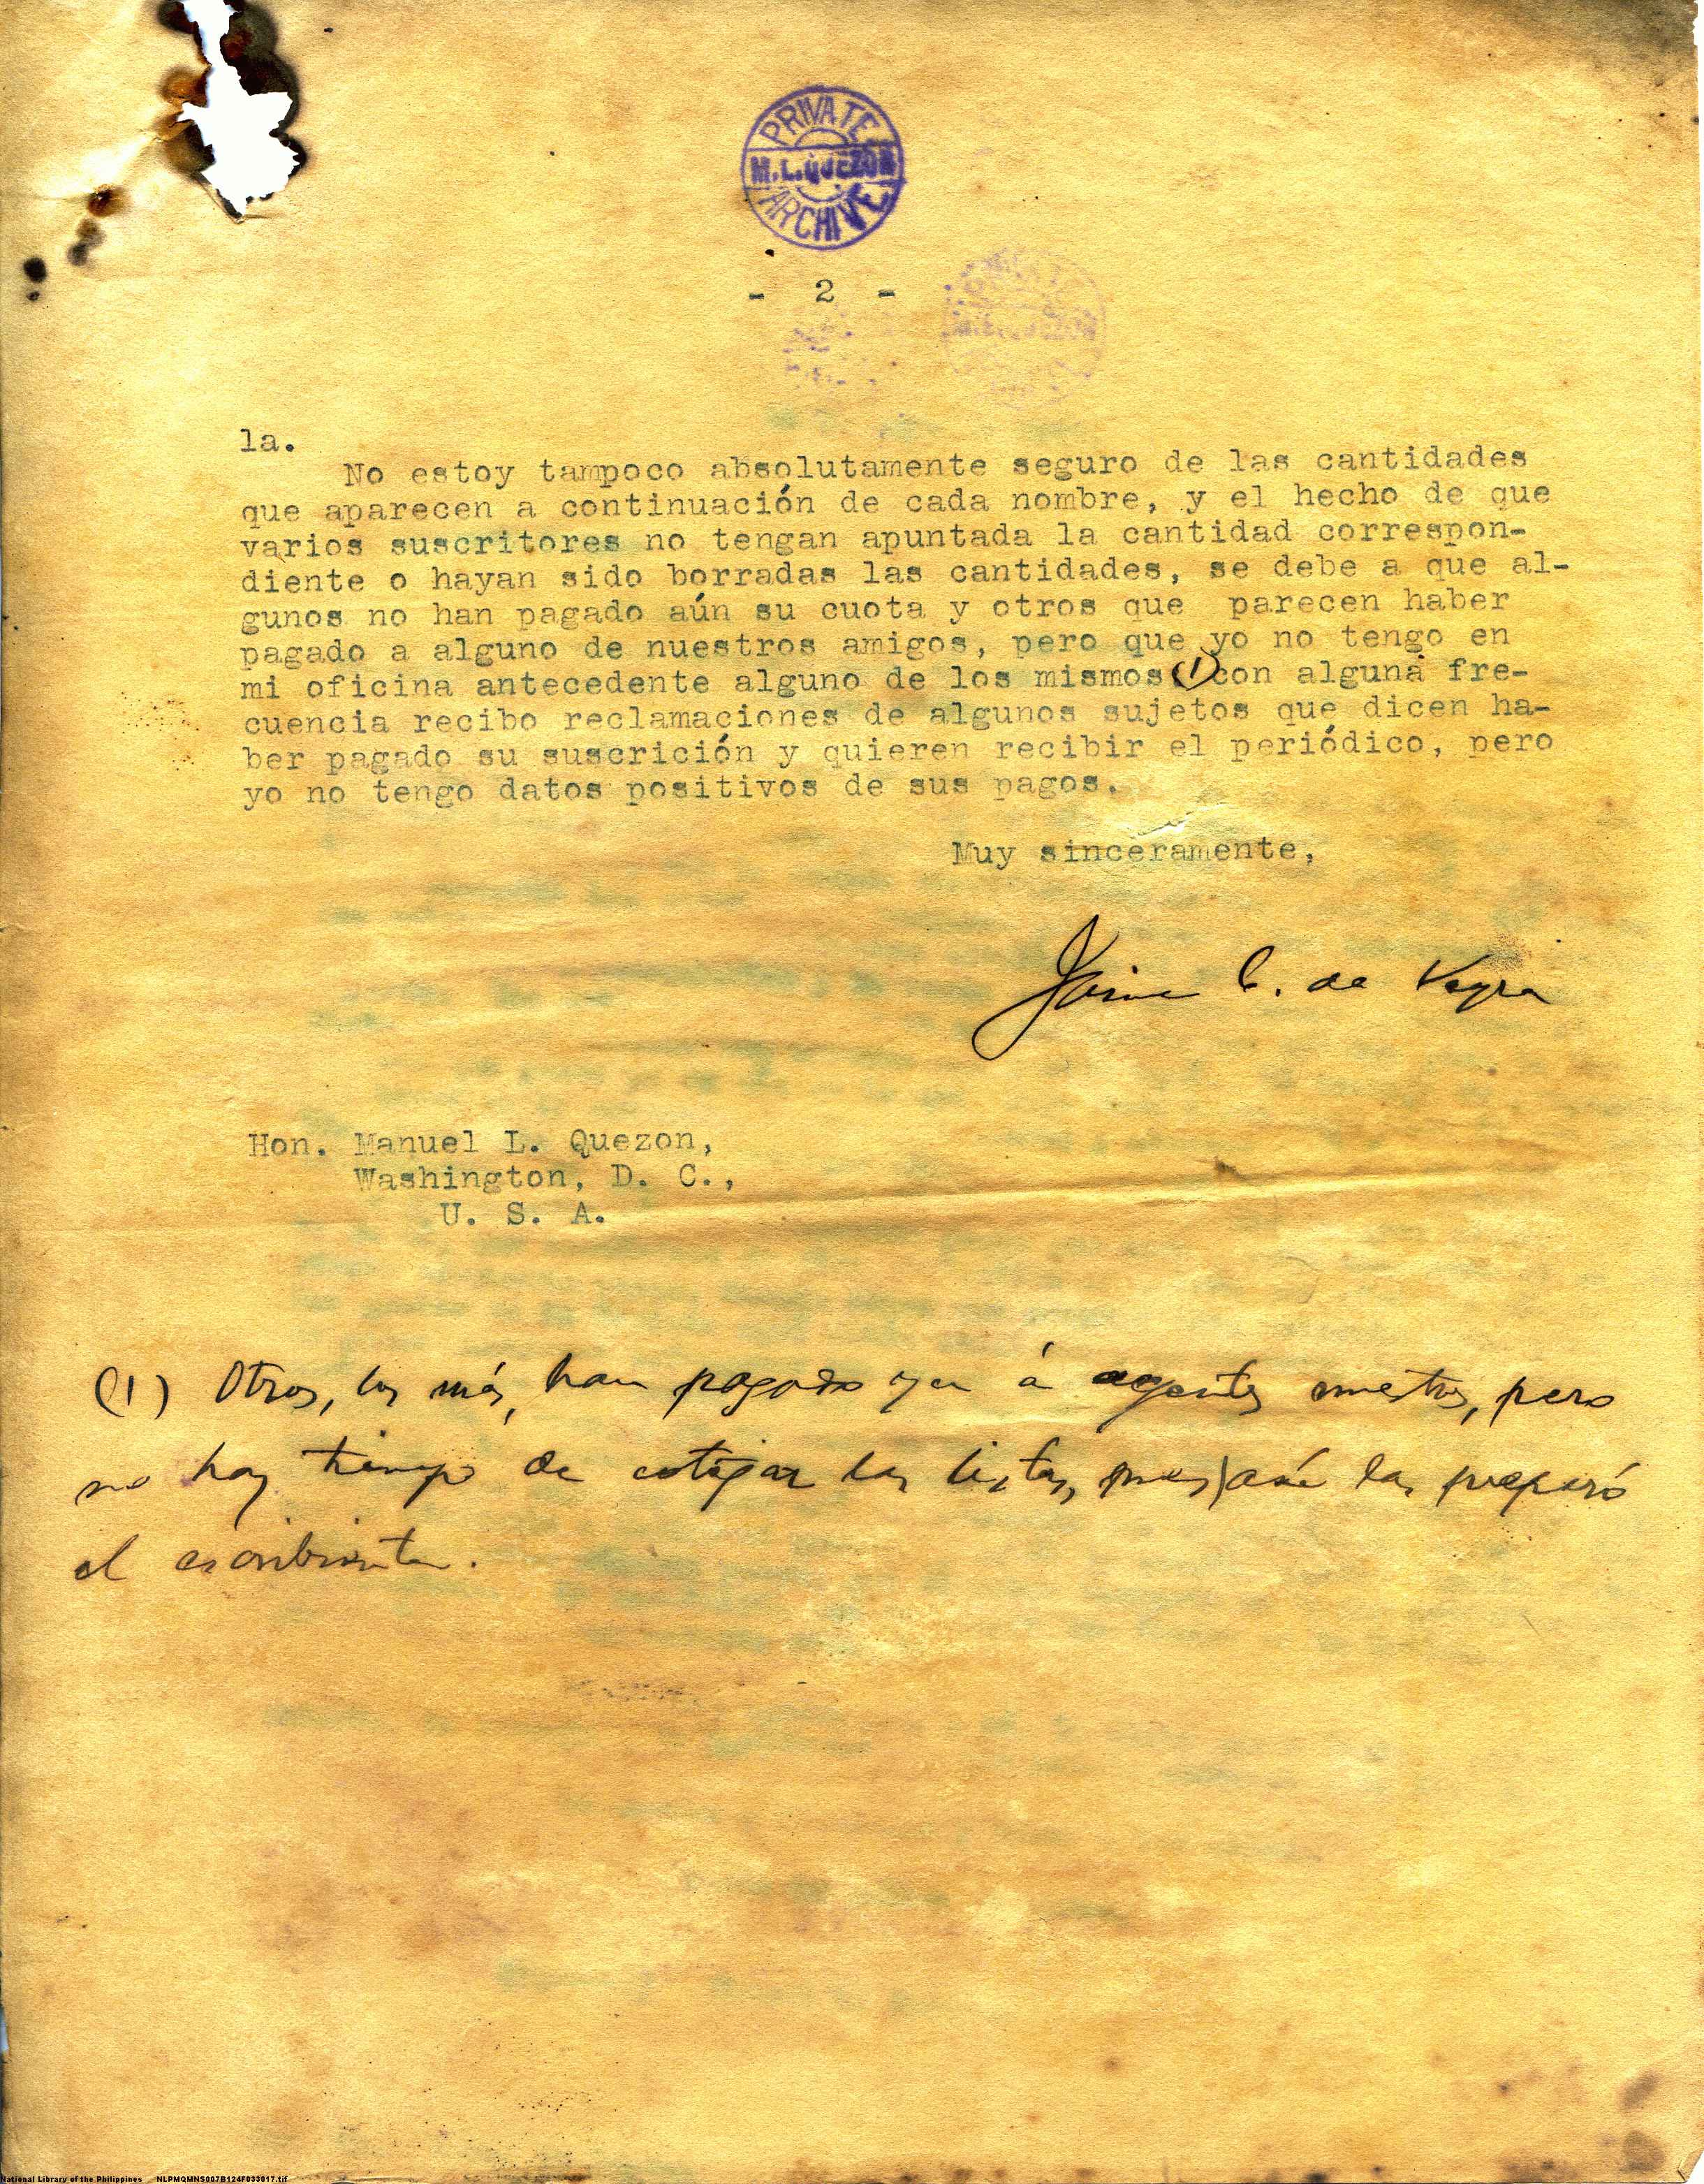 PRIVATE
M. L. QUEZON
ARCHIVE
- 2 -
M. L. QUEZON
la.
No estoy tampoco absolutamente seguro de las cantidades
que aparecen a continuación de cada nombre, y el hecho de que
varios suscritores no tengan apuntada la cantidad correspon-
diente o hayan sido borradas las cantidades, se debe a que al-
gunos no han pagado aún su cuota y otros que parecen haber
pagado a alguno de nuestros amigos, pero que yo no tengo en
mi oficina antecedente alguno de los mismos (1) con alguna fre-
cuencia recibo reclamaciones de algunos sujetos que dicen ha-
ber pagado su suscrición y quieren recibir el periódico, pero
yo no tengo datos positivos de sus pagos.
Muy sinceramente,
Jaime C. de Veyra
Hon. Manuel L. Quezon,
Washington, D. C.,
U. S. A.
(1) Otros, los más, han pagado ya á agentes nuestros, pero
no hay tiempo de cotejar las listas, pues así las preparó
el escribiente.
National Library of the Philippines NLPMQMNS007B124F033017.tif